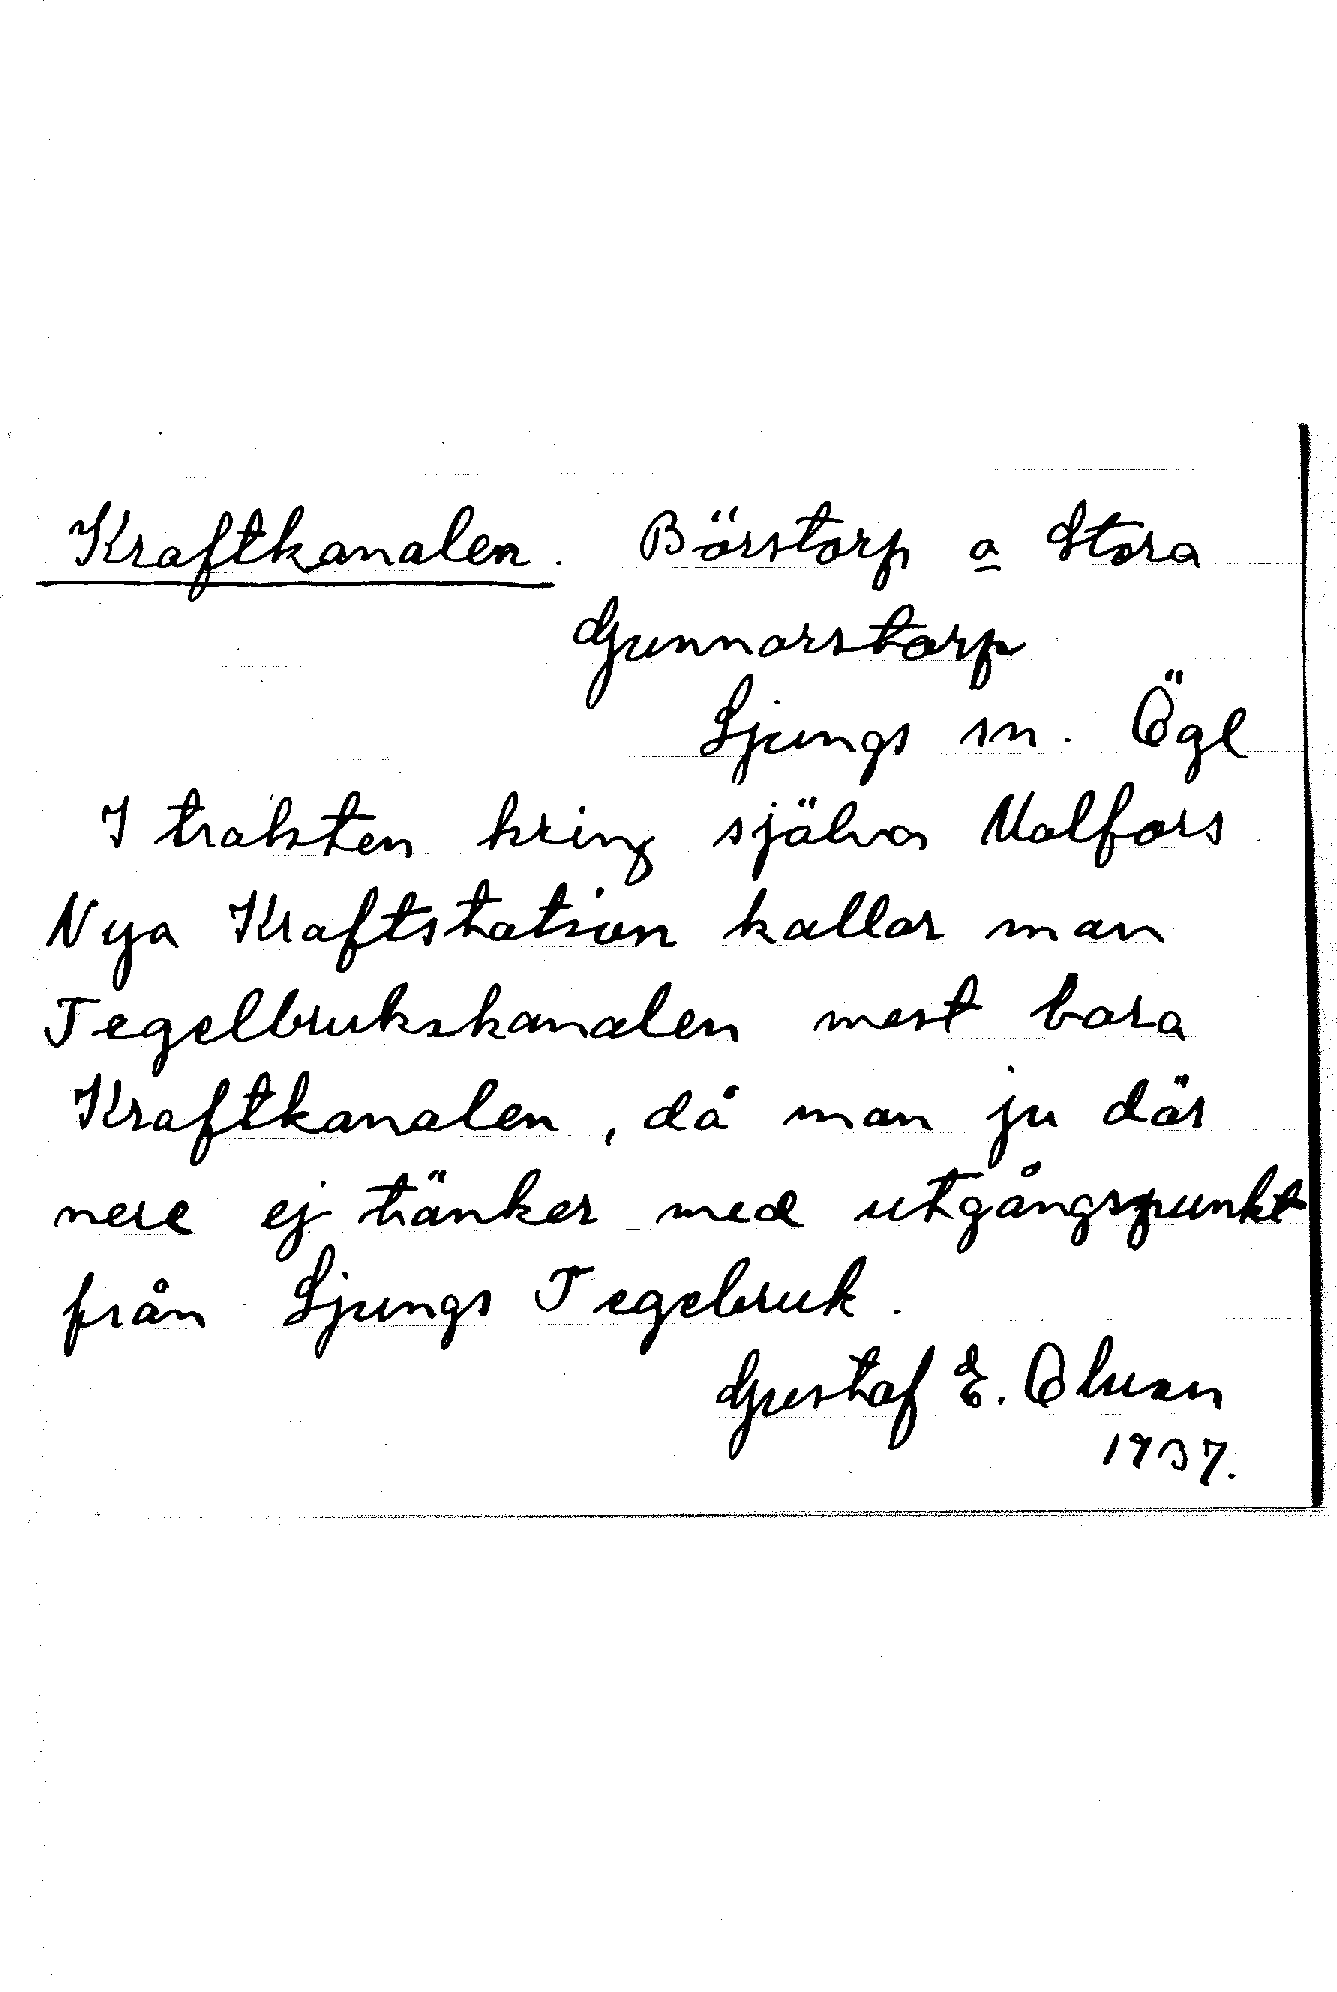 Kraftkanalen. Börstorp a Stora
Gunnarstorp
Ljungs sn. Ögl
I trakten kring själva Malfors
Nya Kraftstation kallar man
Tegelbrukskanalen mest bara
Kraftkanalen, då man ju där
nere ej tänker med utgångspunkt
från Ljungs Tegebruk.
Gustaf E. Olson
1937.